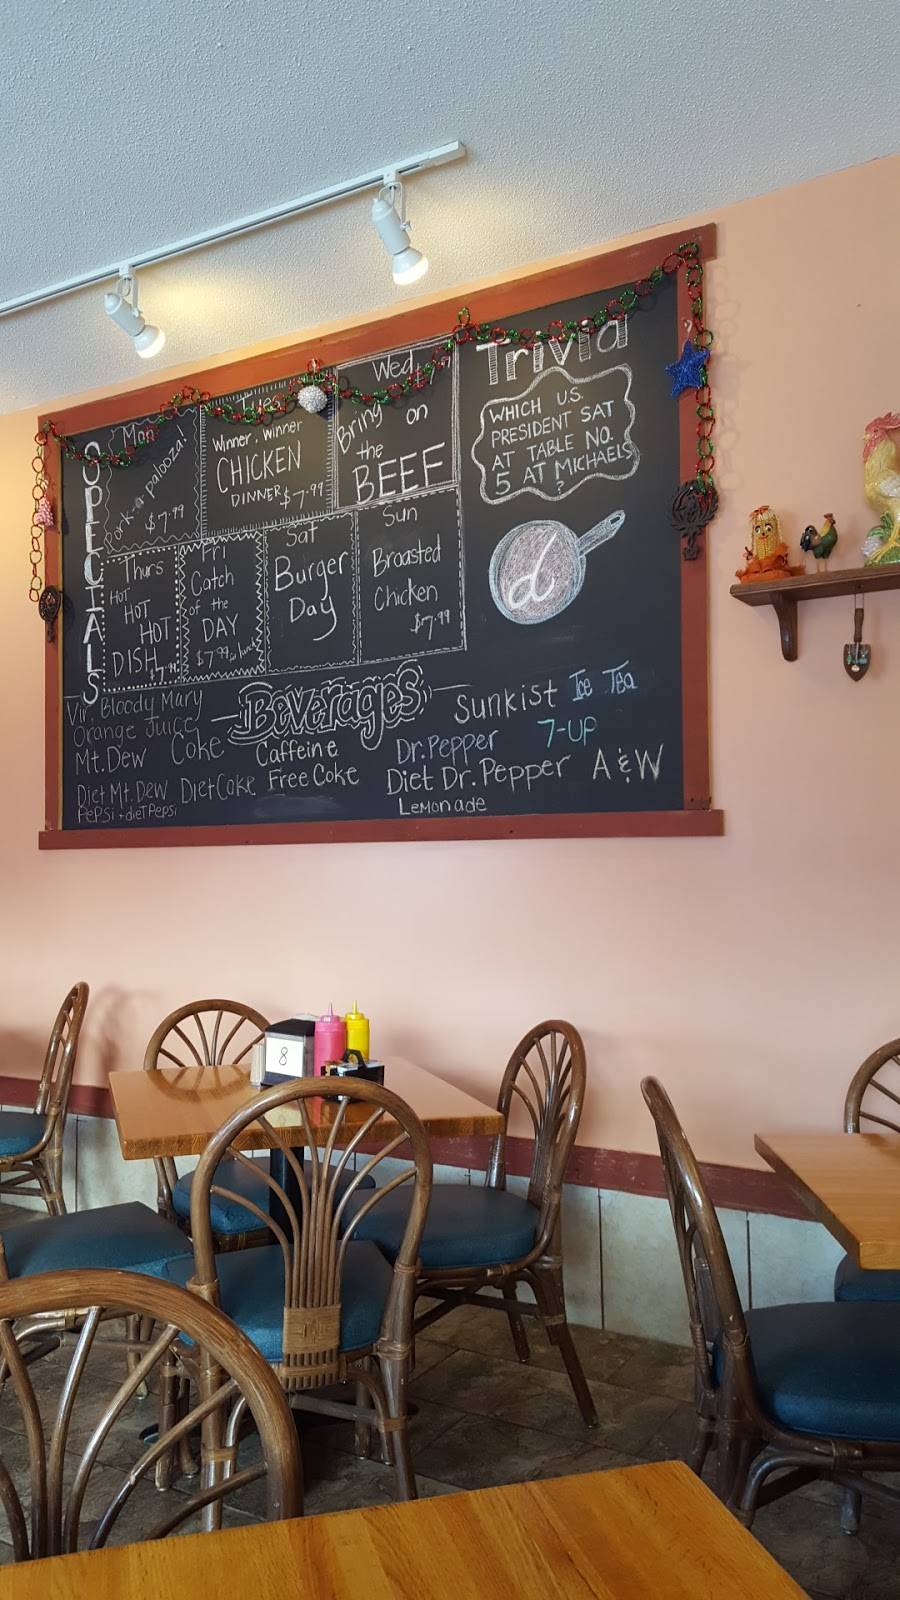 SPECIALS
Mon
Pork-a-palooza!
$7.99
Tues
Winner, Winner
CHICKEN
DINNER $7.99
Wed
Bring on
the
BEEF
Thurs
HOT
HOT
HOT
DISH
$7.99
Fri
Catch
of the
DAY
$7.99
Sat
Burger
Day
Sun
Broasted
Chicken
$7.99
Trivia
WHICH U.S.
PRESIDENT SAT
AT TABLE NO.
5 AT MICHAELS
?
d
Beverages
Vir. Bloody Mary
Orange Juice
Mt. Dew
Coke
Caffeine
Free Coke
Diet Mt. Dew
Diet Coke
PePSi + dieT PePsi
Sunkist
Ice Tea
Dr. Pepper
7-UP
Diet Dr. Pepper
A & W
Lemonade
8